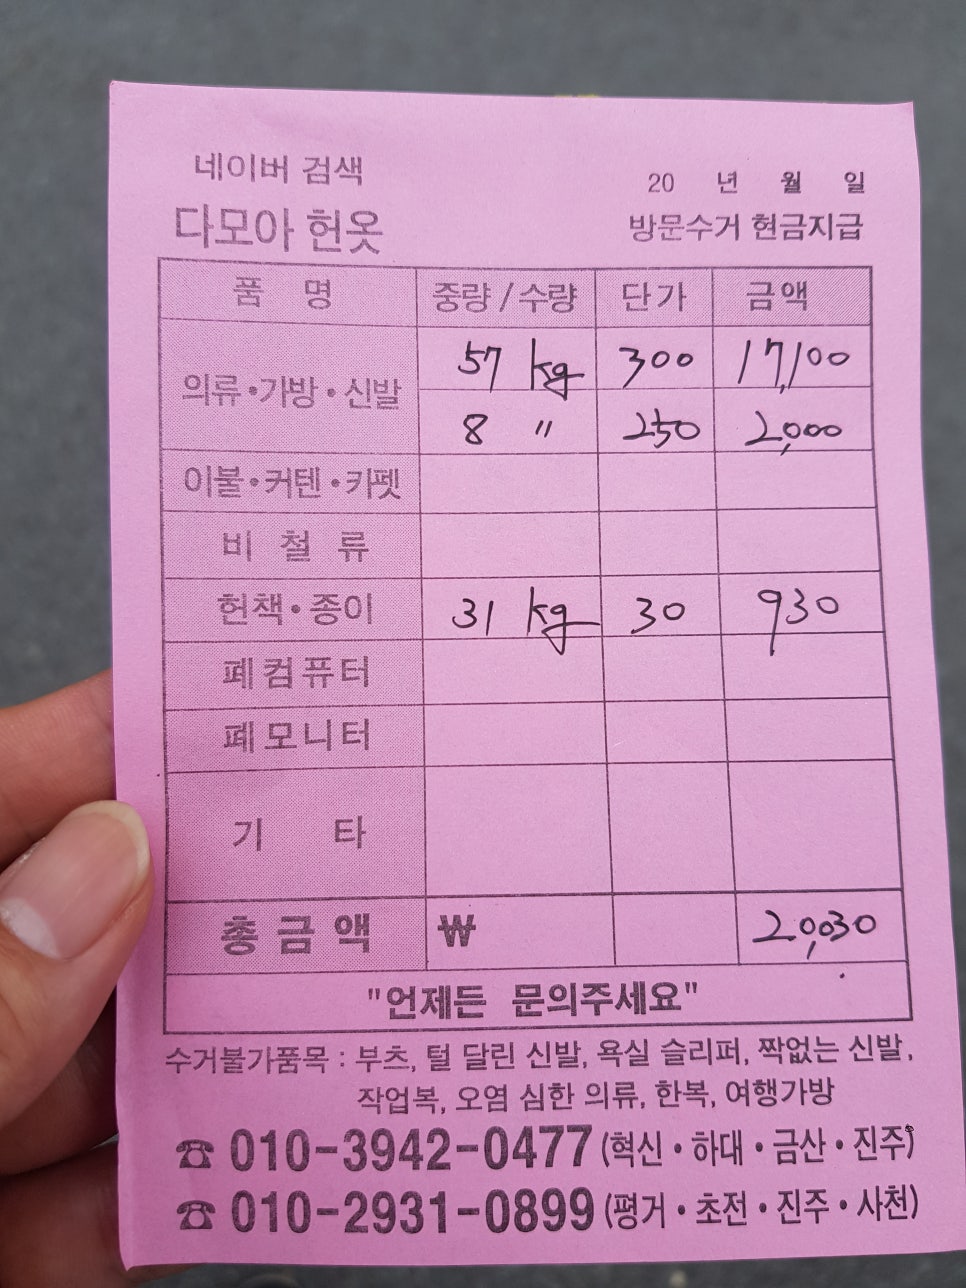 네이버 검색
20 년 월 일
다모아 헌옷
방문수거 현금지급
품 명 중량/수량 단가 금액
의류·가방·신발 57 kg 300 17,100
8 〃 250 2,000
이불·커텐·카펫
비 철 류
헌책·종이 31 kg 30 930
폐컴퓨터
폐모니터
기 타
총금액 ₩ 20,030
"언제든 문의주세요"
수거불가품목 : 부츠, 털 달린 신발, 욕실 슬리퍼, 짝없는 신발,
작업복, 오염 심한 의류, 한복, 여행가방
☎ 010-3942-0477 (혁신·하대·금산·진주)
☎ 010-2931-0899 (평거·초전·진주·사천)